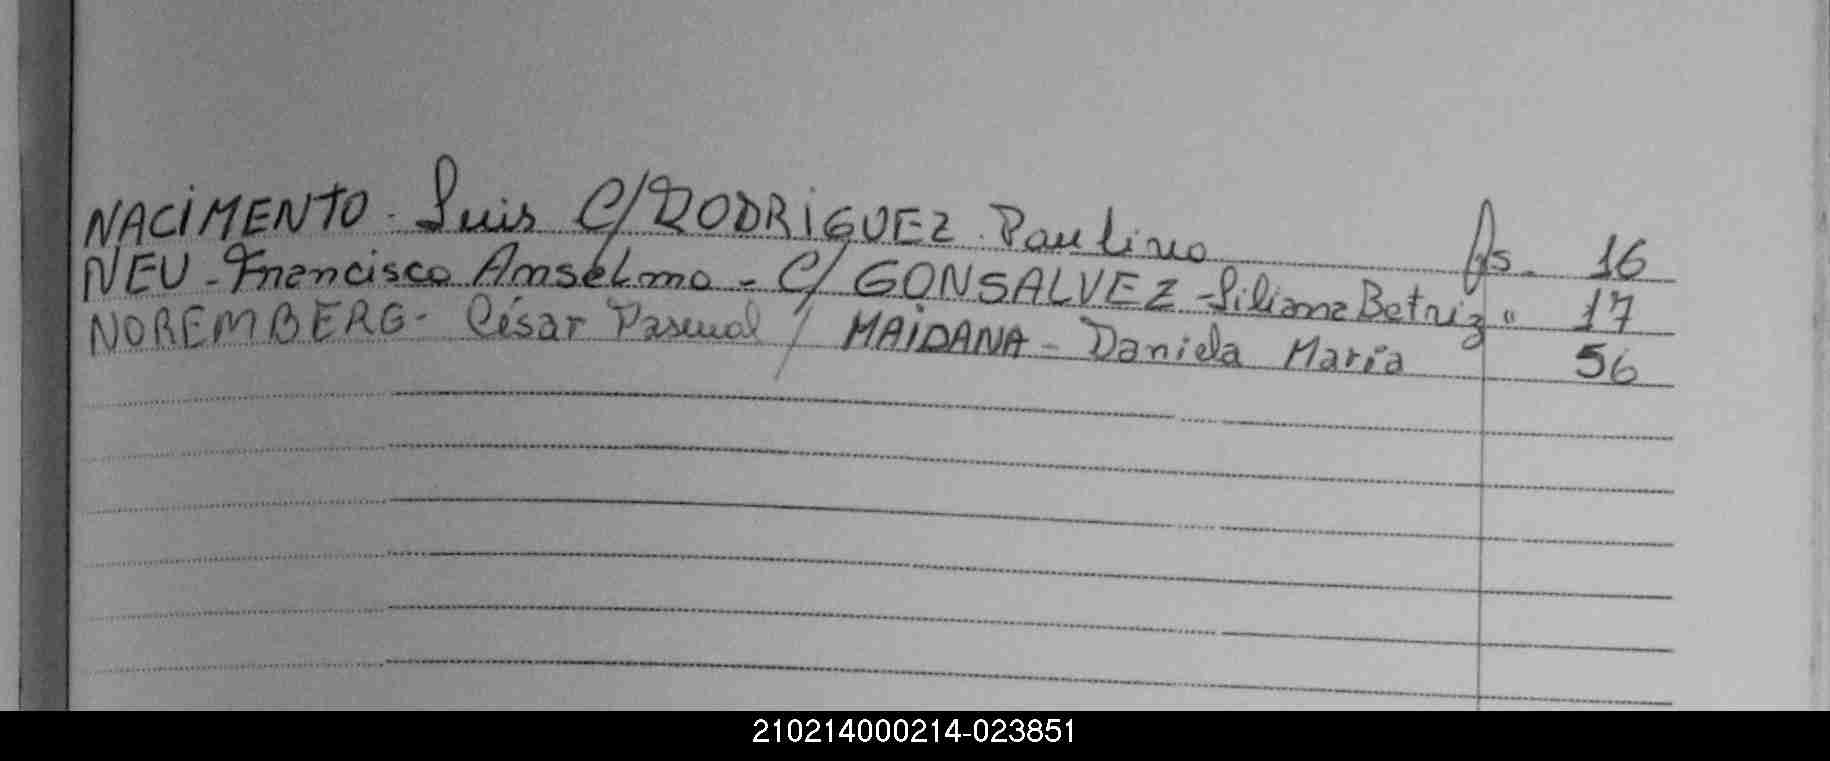 NACIMENTO - Luis C/RODRIGUEZ - Paulino fs. 16
NEU - Francisco Anselmo - C/ GONSALVEZ - Liliana Betriz " 17
NOREMBERG - César Pascual / MAIDANA - Daniela María 56
210214000214-023851